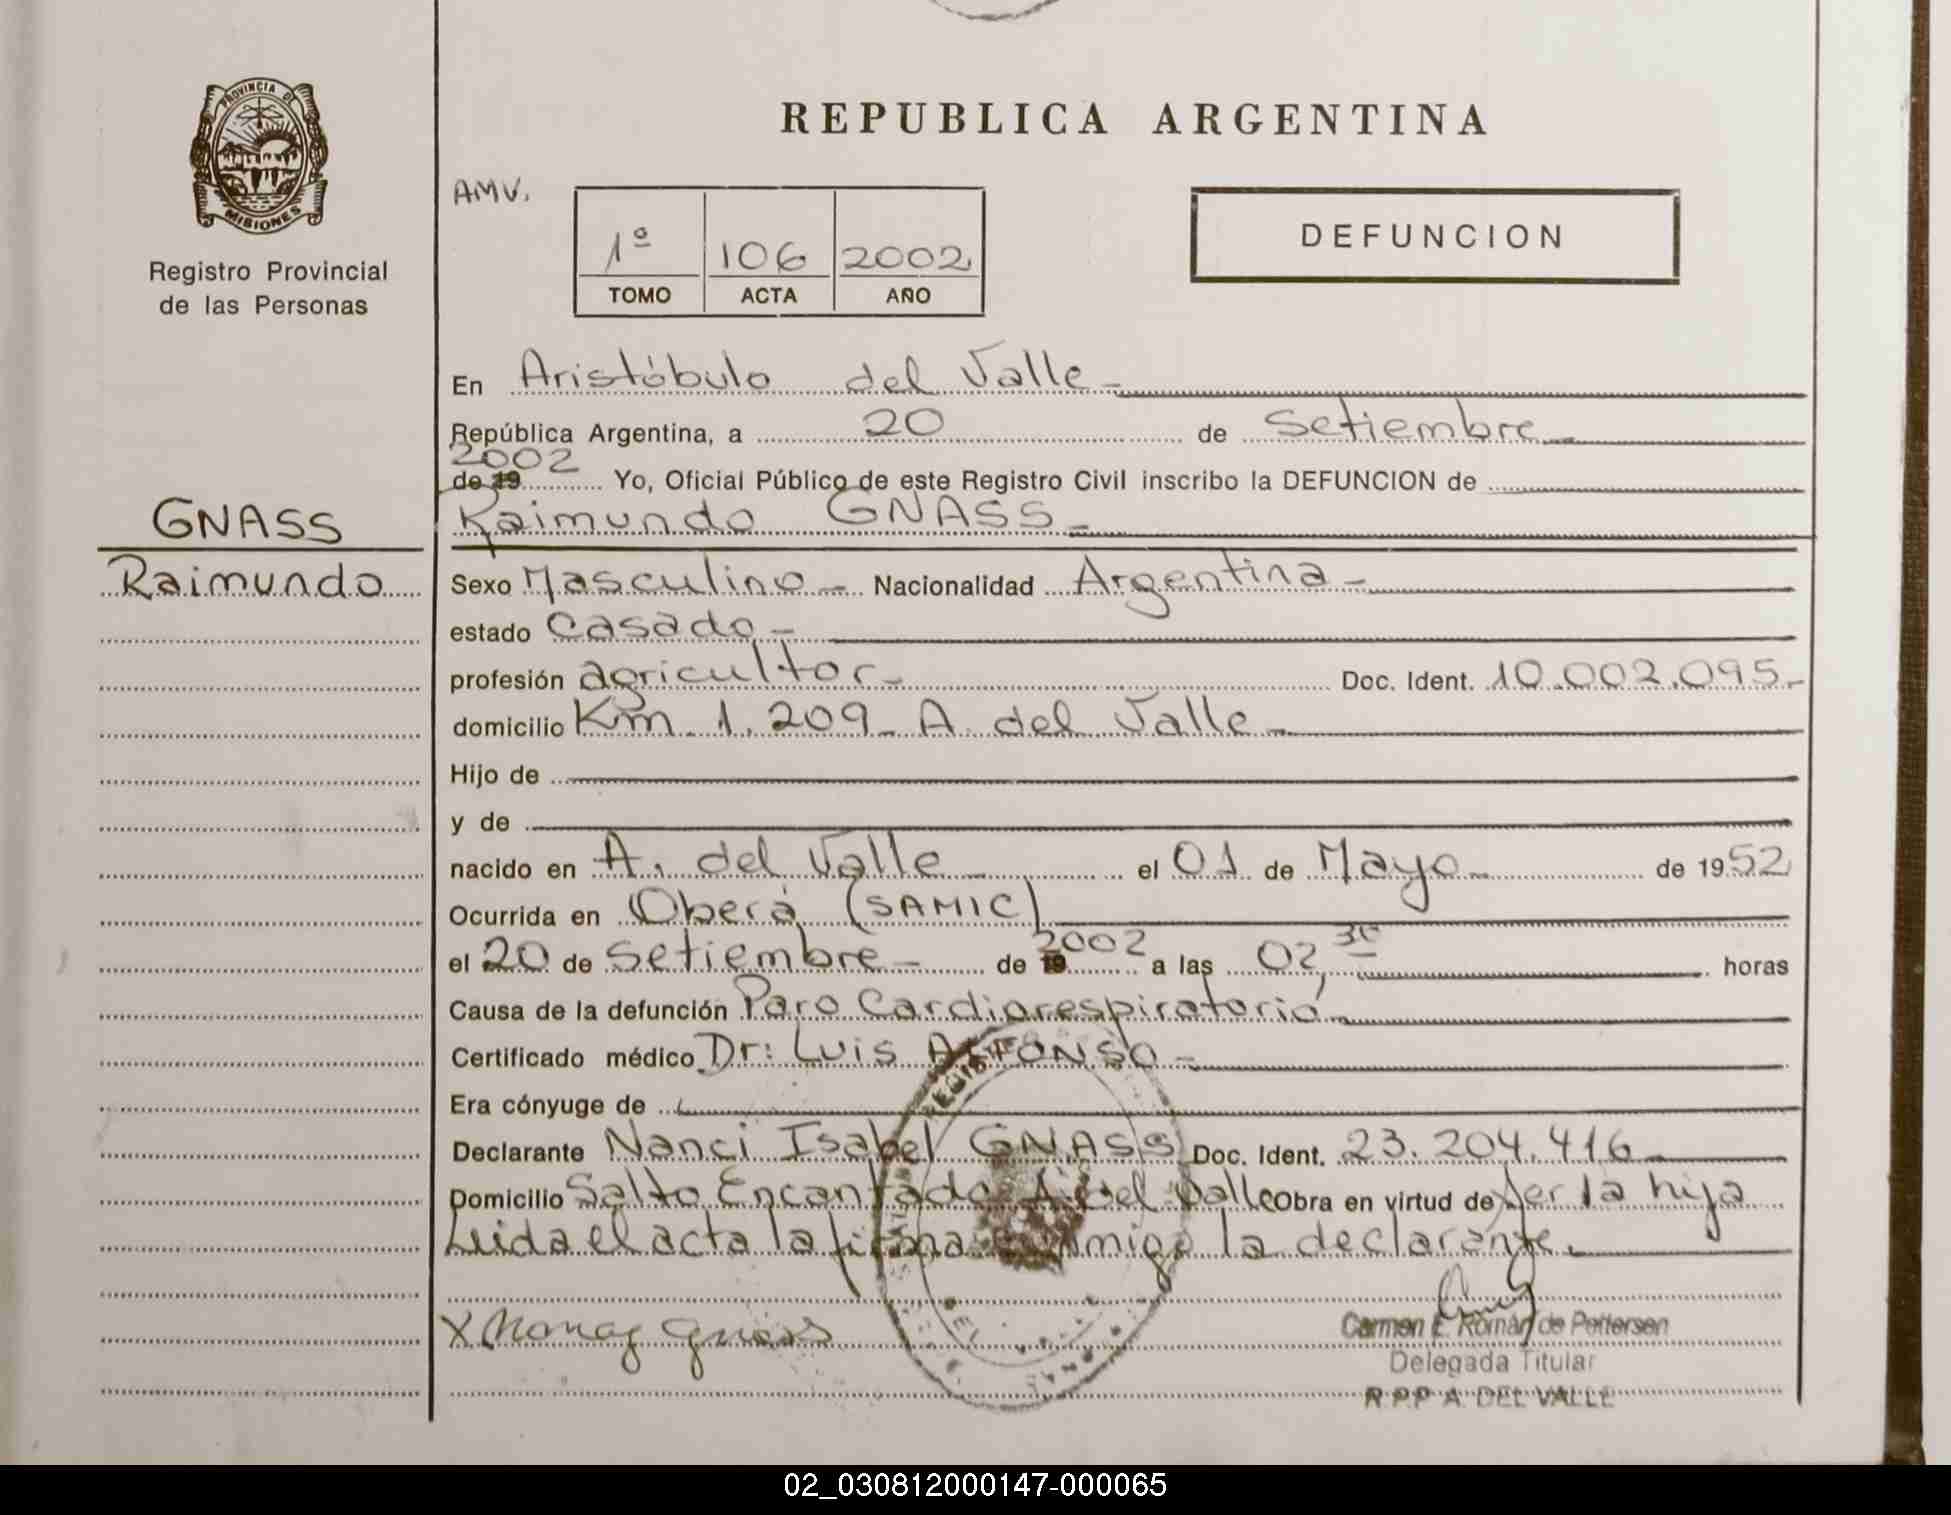 PROVINCIA DE
MISIONES
Registro Provincial
de las Personas
REPUBLICA ARGENTINA
AMV.
1º 106 2002
TOMO ACTA AÑO
DEFUNCION
En Aristóbulo del Valle
República Argentina, a 20 de Setiembre
2002
de 19 Yo, Oficial Público de este Registro Civil inscribo la DEFUNCION de
Raimundo GNASS
GNASS
Raimundo
Sexo Masculino Nacionalidad Argentina
estado Casado
profesión agricultor Doc. Ident. 10.002.095
domicilio Km 1.209 A. del Valle
Hijo de
y de
nacido en A. del Valle el 01 de Mayo de 1952
Ocurrida en Oberá (SAMIC)
el 20 de Setiembre de 19 2002 a las 02,30 horas
Causa de la defunción Paro Cardiorespiratorio
Certificado médico Dr: Luis ALFONSO
Era cónyuge de
Declarante Nanci Isabel GNASS Doc. Ident. 23.204.416
Domicilio Salto Encantado A. del Valle Obra en virtud de ser la hija
Leida el acta la firma conmigo la declarante.
X Nancy Gnass
Carmen E. Román de Pettersen
Delegada Titular
R.P.P A. DEL VALLE
02_030812000147-000065